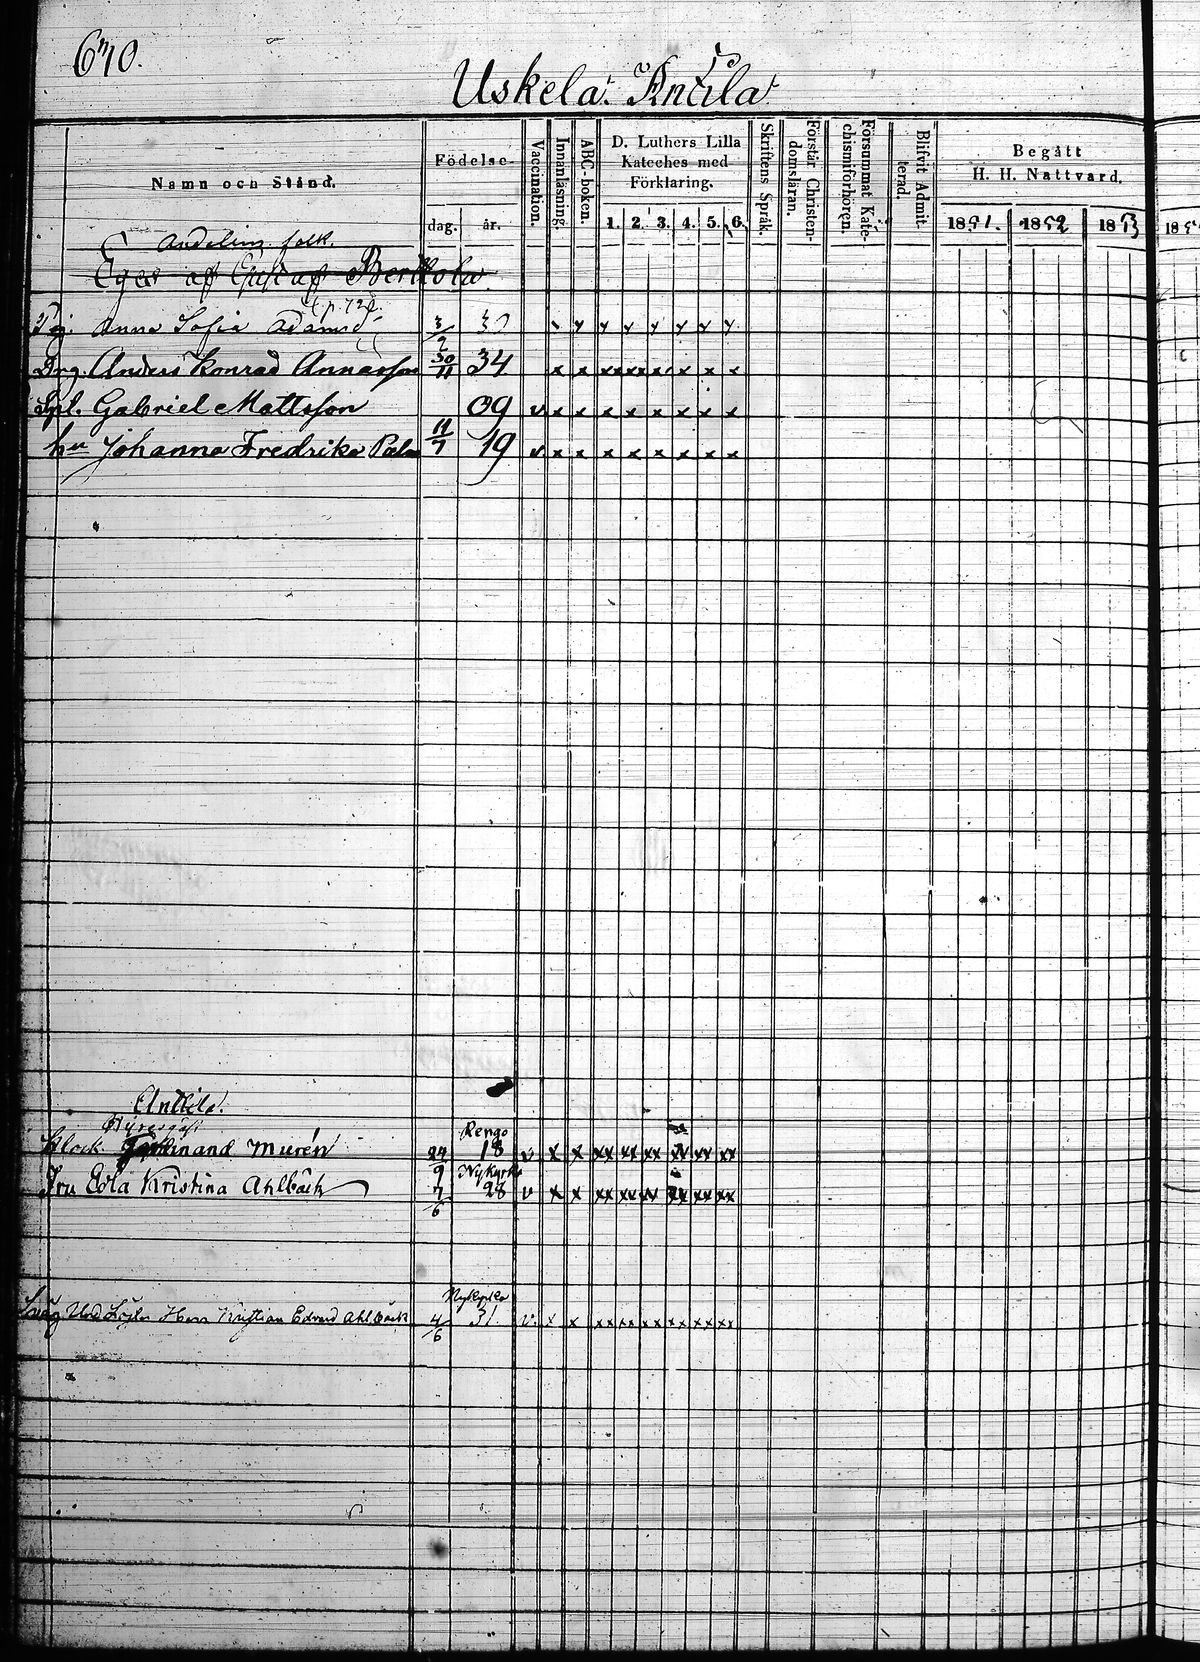 670.
Uskela. Knaila
Namn och Stånd.
Födelse-
dag. år.
Vaccination.
Innanläsning.
ABC-boken.
D. Luthers Lilla
Kateches med
Förklaring.
1. 2. 3. 4. 5. 6.
Skriftens Språk.
Förstår Christen-
domsläran.
Försummat Kate-
chismiförhören.
Blifvit Admit-
terad.
Begått
H. H. Nattvard.
1851. 1852 1853
folk.
Eges af Gustaf Bertkola
Pig. Anna Sofia Adamsd 3/2 30
Drg. Anders Konrad Annasson 30/11 34
Gabriel Mattsson 09 v x x x x x x x x
hu Johanna Fredrika 11/7 19 v x x x x x x x x
Anttila.
Rengo
Klock. Ferdinand Murén 24/9 18 v x x xx xx xx xx xx xx
Nykyrka
Fru Eva Kristina Ahlbäck 7/6 28 v x x xx xx xx xx xx xx
Nykyrka
Herr Kristian Edvard Ahlbäck 4/6 31 v. x x xx xx xx xx xx xx